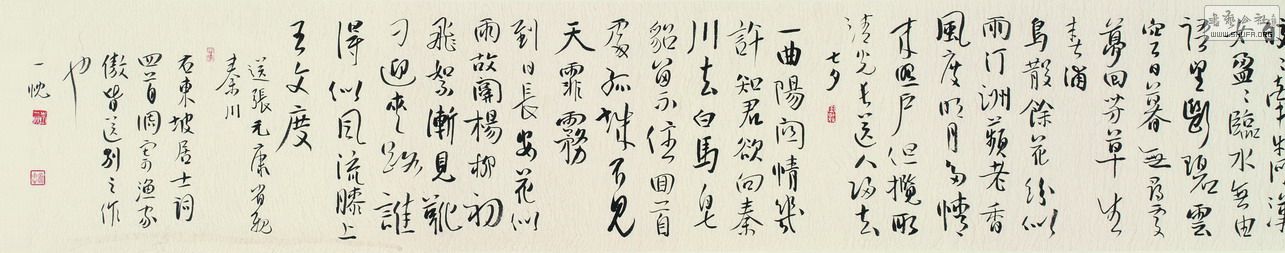 牽牛河漢
女盈〻臨水無由
語望斷碧雲
空日暮無尋處
夢回芳草生
春浦
鳥散餘花紛似
雨汀洲蘋老香
風度明月多情
来照户但攬取
清光長送人歸去
七夕
一曲陽関情幾
許知君欲向秦
川去白馬皂
貂留不住回首
處孤城不見
天霏霧
到日長安花似
雨故関楊柳初
飛絮漸見靴
刀迎夾路誰
得似風流膝上
王文度
送張元康省親
秦川
右東坡居士詞
四首調寄漁家
傲皆送别之作
也
一忱